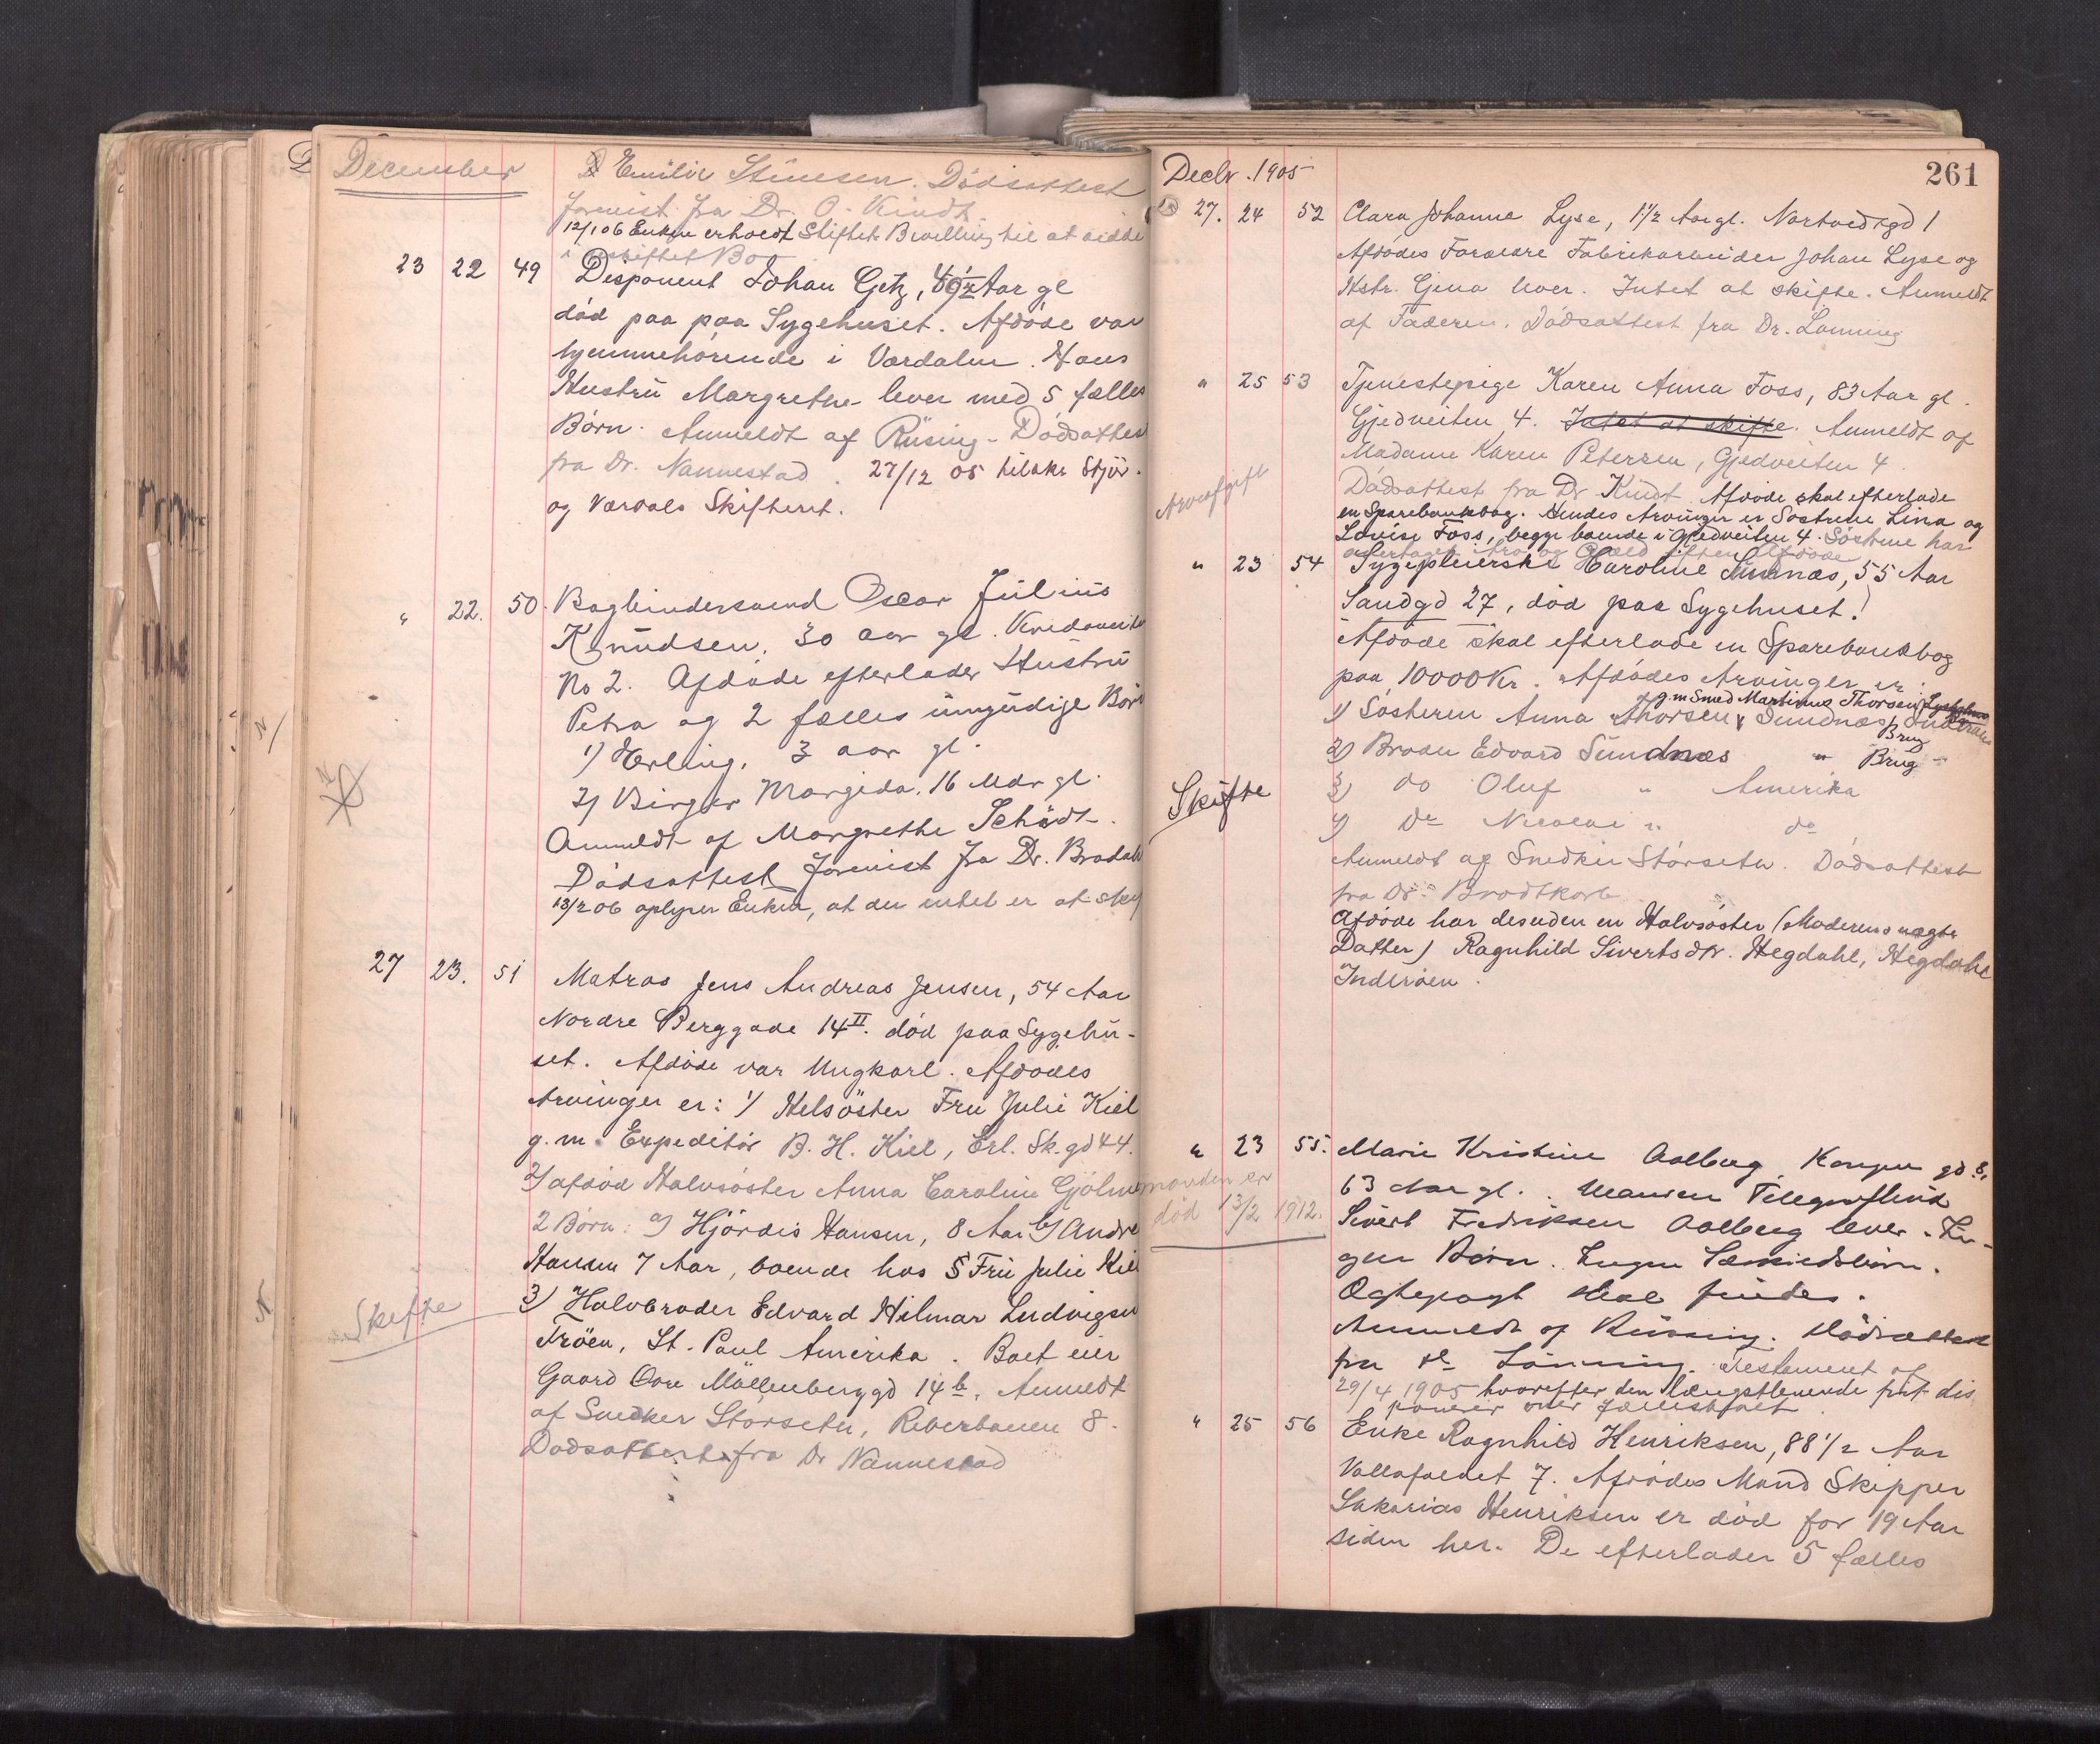 December
Emilie Stensen. Dödsattest
forevist fra Dr. O. Kindt.
12/1 06 Enken erholdt Stiftets Bevilling til at sidde
i uskiftet Bo
23 22 49 Disponent Johan Getz, 49½ Aar gl
död paa paa Sygehuset. Afdöde var
hjemmehörende i Værdalen. Hans
Hustru Margrethe lever med 5 fælles
Börn. Anmeldt af Rüsing. Dödsattest
fra Dr. Nannestad. 27/12 05 tilskr. Stjör.
og Værdals Skifteret.
" 22. 50. Bogbindersvend Oscar Julius
Knudsen, 30 aar gl.
No 2. Afdöde efterlader Hustru
Petra og 2 fælles umyndige Börn
1) Erling, 3 aar gl.
2) Birger Margido. 16 Mdr gl.
Anmeldt af Margrethe Schödt.
Dödsattest forevist fra Dr.
13/2 06 oplyser Enken, at der intet er at
27 23. 51 Matros Jens Andreas Jensen, 54 Aar
Nordre Berggade 14 II. död paa Sygehu-
set. Afdöde var Ungkarl. Afdödes
Arvinger er: 1) Helsöster Fru Julie Kiel
g. m. Expeditör B. H. Kiel, Erl. Sk. gd 44.
2) afdöd Halvsöster Anna Caroline
2 Börn: a) Hjördis Hansen, 8 Aar b)
Hansen 7 Aar, boende hos Fru Julie Kiel
Skifte 3) Halvbroder Edvard Hilmar Ludvigsen
Fröen, St. Paul Amerika. Boet eier
Gaard Övre Möllenberggd 14 b. Anmeldt
af Snedker Störseth, Reberbanen 8.
Dödsattest fra Dr Nannestad
Decbr. 1905
261
27. 24 52 Clara Johanne Lyse, 1½ Aar gl. 1
Afdödes Forældre Fabrikarbeider Johan Lyse og
Hstr. Gjena lever. Intet at skifte. Anmeldt
af Faderen. Dödsattest fra Dr. Lönning
" 25 53 Tjenestepige Karen Anna Foss, 83 Aar gl.
Gjedveiten 4. Intet at skifte. Anmeldt af
Madame Karen Petersen, Gjedveiten 4.
Arveafgift Dödsattest fra Dr Kindt. Afdöde skal efterlade
en Sparebankbog. Hendes Arvinger er Söstrene Lina og
Lovise Foss, begge boende i Gjedveiten 4. Söstrene har
overtaget Arv og Gjæld efter Afdöde
" 23 54 Sygepleierske Karoline Sundnæs, 55 Aar
Sandgd 27, död paa Sygehuset!
Afdöde skal efterlade en Sparebankbog
paa 10000 Kr. Afdödes Arvinger er:
g.m Smed Martinus Thorsen
1) Sösteren Anna Thorsen, Sundnæs,
Brug
2) Broder Edvard Sundnæs " Brug "
Skifte 3) do Oluf " Amerika
4) Do Nicolai " do
Anmeldt af Snedker Störseth. Dödsattest
fra Dr. Brodtkorb
Afdöde har desuden en Halvsöster (Moderens uægte
Datter) Ragnhild Sivertsdtr. Hegdahl, Hegdahl
Inderöen.
" 23 55. Marie Kristine Aalberg, Kongens gd
63 Aar gl. Manden Telegrafbud
Manden er
död 13/2 1912.
Sivert Fredriksen Aalberg lever. In-
gen Börn. Ingen Særkuldsbörn.
Ægtepagt skal findes.
Anmeldt af Rüssing. Dödsattest
fra Dr Lönning. Testament af
29/4 1905 hvorefter den længstlevende frit dis
ponerer over Fællesboet
" 25 56 Enke Ragnhild Henriksen, 88 1/2 Aar
Vollafaldet 7. Afdödes Mand Skipper
Sakarias Henriksen er död for 19 Aar
siden her. De efterlader 5 fælles